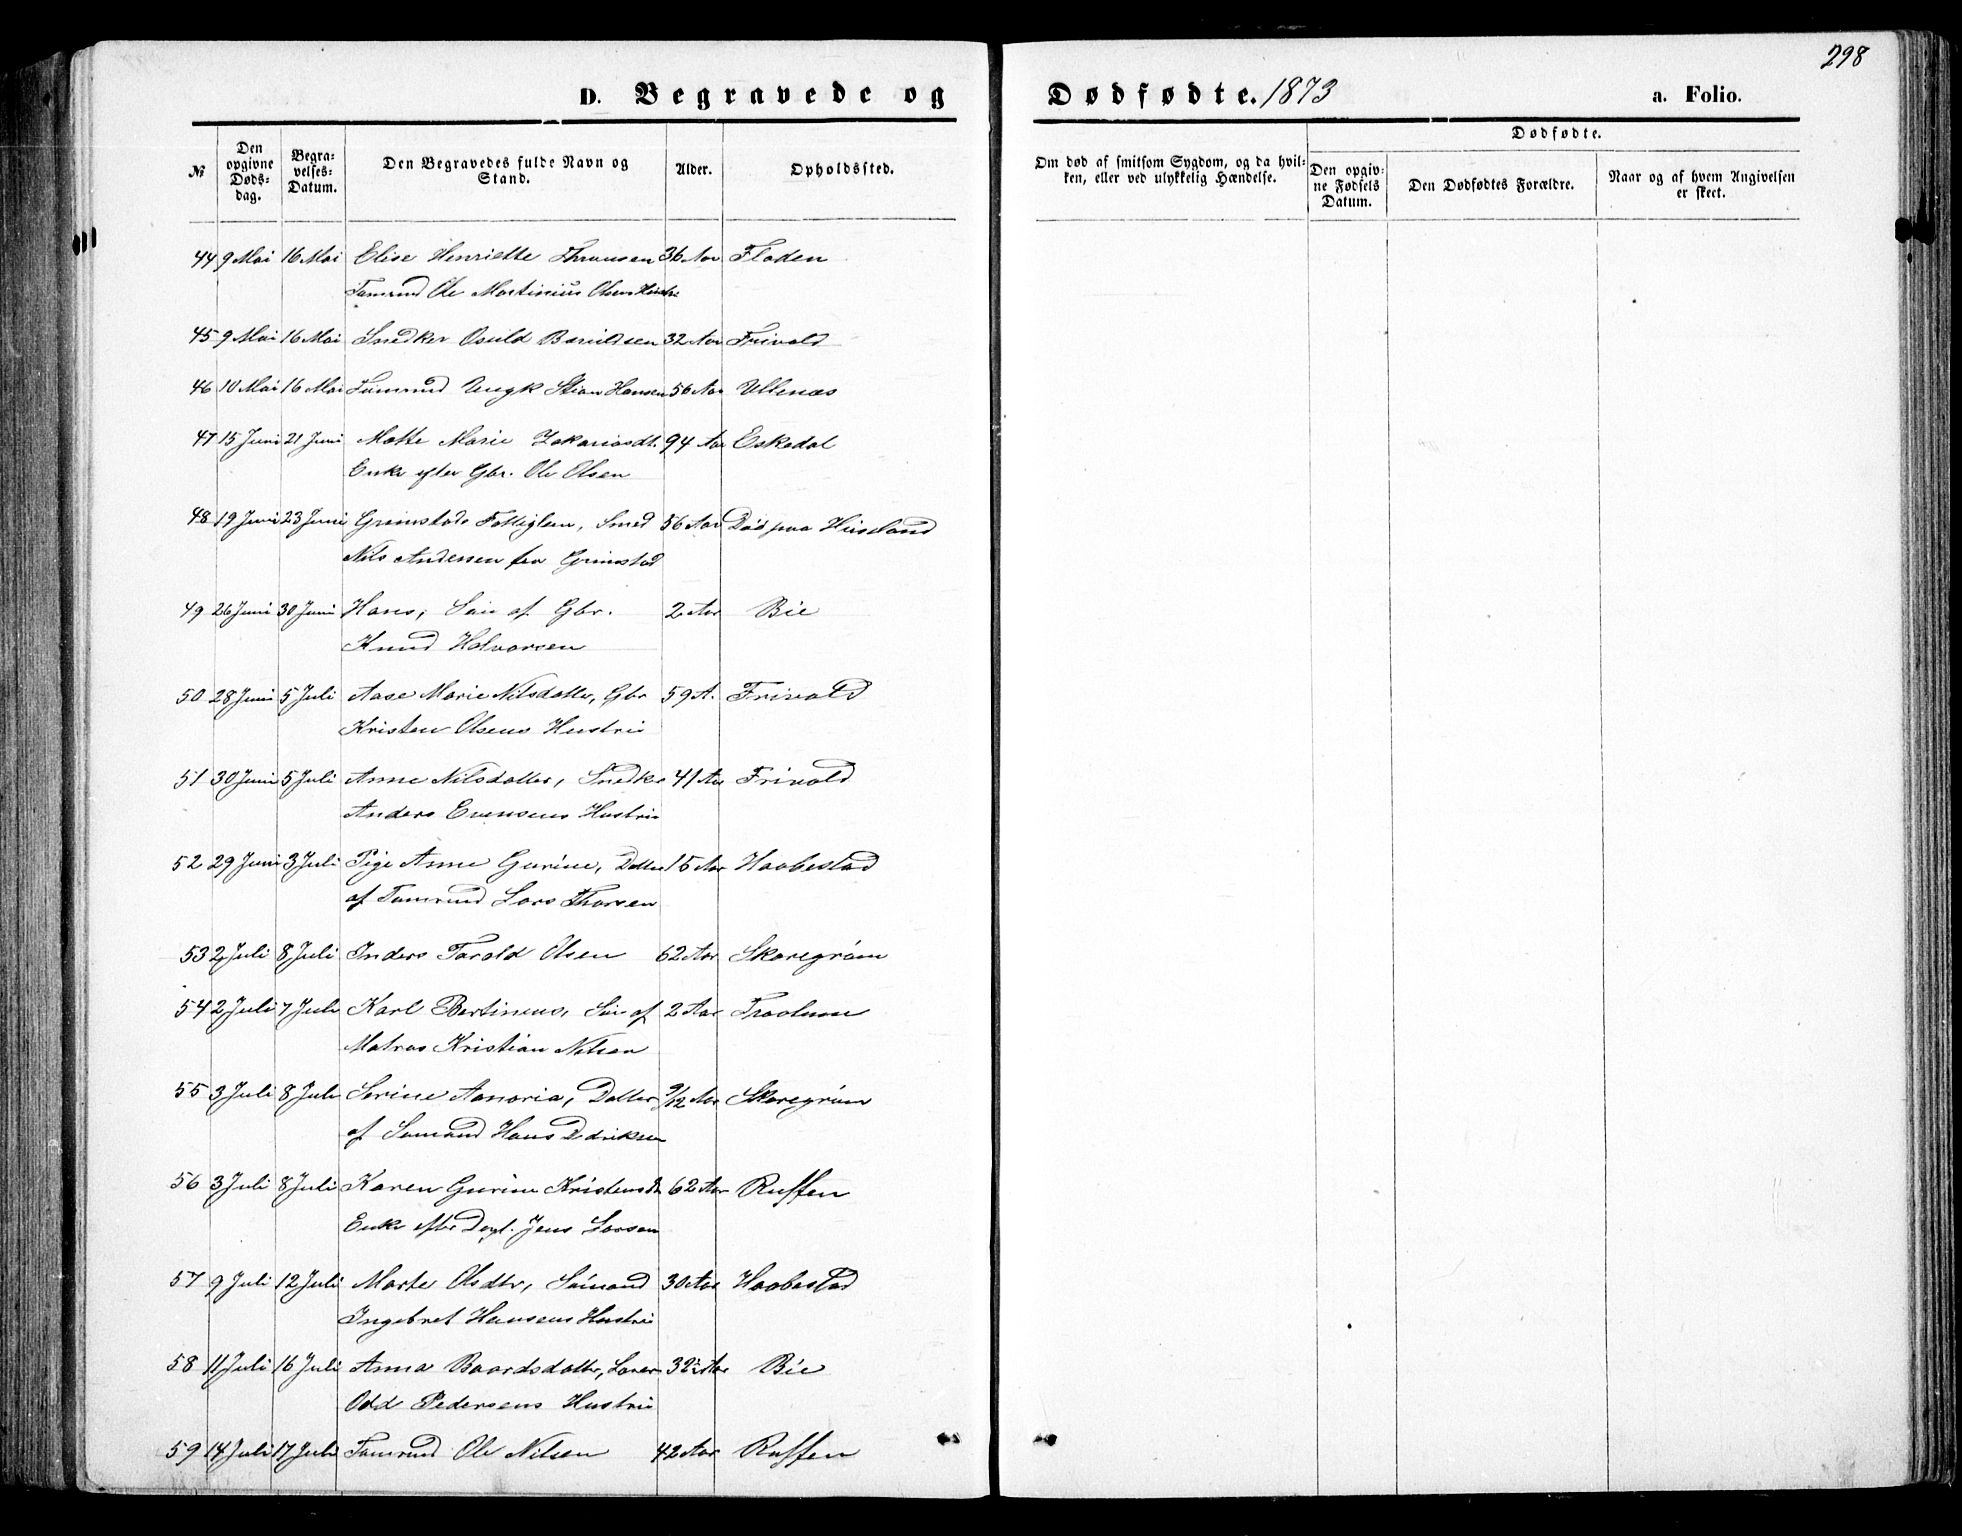 298
D. Begravede og Dødfødte. 1873 a. Folio.
№ Den opgivne Døds-dag. Begra-velses-Datum. Den Begravedes fulde Navn og Stand. Alder. Opholdssted. Om død af smitsom Sygdom, og da hvil-ken, eller ved ulykkelig Hændelse. Dødfødte. Den opgiv-ne Fødsels Datum. Den Dødfødtes Forældre. Naar og af hvem Angivelsen er skeet.
44 9 Mai 16 Mai Elise Henriette 36 Aar Floden
Tømmd Ole Martinius Olsens Hustru
45 9 Mai 16 Mai Snedker Osuld 32 Aar Frivold
46 10 Mai 16 Mai Tømmd Ungk Stian Hansen 56 Aar Ullenæs
47 15 Juni 21 Juni Matte Marie Zakariasdt. 94 Aar Eskedal
Enke efter Gbr. Ole Olsen
48 19 Juni 23 Juni Grimstads Fattiglem, Smed 56 Aar Død paa Hüseland
Nils Andersen fra Grimstad
49 26 Juni 30 Juni Hans, Søn af Gbr. 2 Aar Bie
Knud Halvorsen
50 28 Juni 5 Juli Aase Marie Nilsdatter, Gbr 59 A. Frivold
Kristen Olsens Hustru
51 30 Juni 5 Juli Anne Nilsdatter, Snedker 41 Aar Frivold
Anders Evensens Hustru
52 29 Juni 3 Juli Pige Anne Gurine, Datter 15 Aar Haabestad
af Tømmd Lars Thorsen
53 2 Juli 8 Juli Inders Tarald Olsen 62 Aar Skaregrøm
54 2 Juli 7 Juli Karl Bertineus, Søn af 2 Aar Traolum
Matros Kristian Nilsen
55 3 Juli 8 Juli Serine Aanoria, Datter 9/12 Aar Skaregrøm
af Sømand Hans Ddriksen
56 3 Juli 8 Juli Karen Gurine Kristensdt 62 Aar Ruffen
Enke efter Dagl. Jens Larsen
57 9 Juli 12 Juli Marte Olsdtr, Sømand 30 Aar Haabestad
Ingebret Hansens Hustru
58 11 Juli 16 Juli Anna Baardsdatter, 32 Aar Bie
Odd Pedersens Hustru
59 14 Juli 17 Juli Tømmd Ole Nilsen 42 Aar Ruffen